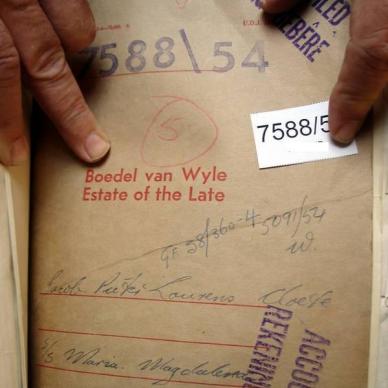 7588\54
7588/5
5
Boedel van Wyle
Estate of the Late
GF 38/360-4 5091/54
W.
Jacob Pieter Lourens Cloete
s/s Maria Magdalena
ACCOU
REKENIN